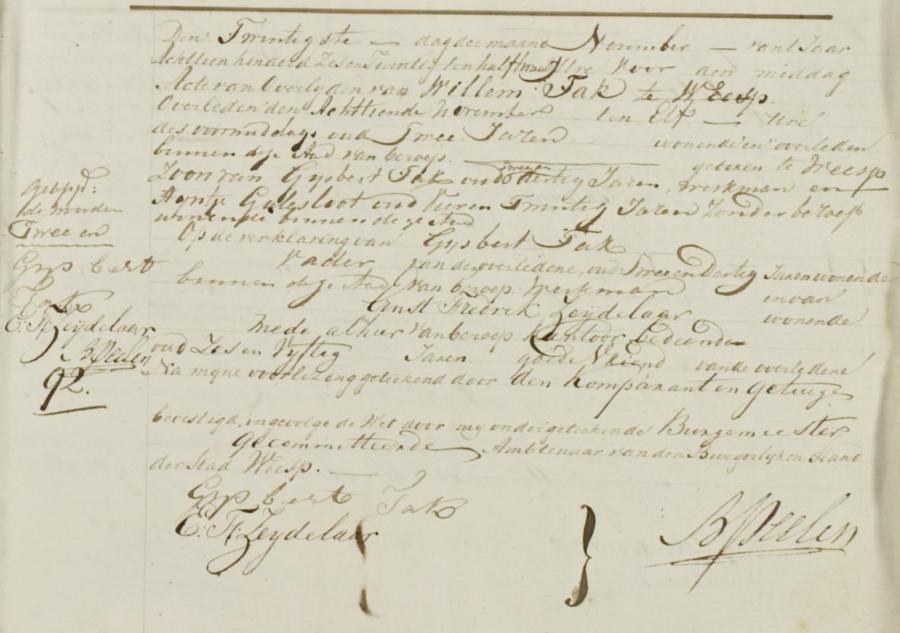 Den Twintigste dag der maand November van t Jaar
Achttienhonderd Zes en Twintig ten half Ure Voor den middag
Acte van Overlyden van Willem Tak te Weesp.
Overleden den Achttiende November ten Elf Ure
des voormiddags oud Twee Jaren wonende en overleden
binnen deze Stad van beroep geboren te Weesp
Zoon van Gysbert Tak oud dertig Jaren, werkman en
Oud Vier en Twintig Jaren Zonder beroep
wonende binnen deze Stad
Op de verklaring van Gysbert Tak
Vader van de overledene, oud Twee en Dertig Jaren wonende
binnen deze Stad van beroep Werkman en van
Ernst Fredrik Zeydelaar wonende
mede alhier van beroep Kantoor bediende
oud Zes en Vyftig Jaren goede Vriend van de overledene
Na myne voorlezing geteekend door den Komparant en Getuige
bevestigd, ingevolge de Wet door my ondergeteekende Burgemeester
Gecommitteerde Ambtenaar van den Burgerlyken Stand
der Stad Weesp.
Gysbert Tak
E: F: Zeydelaar
de woorden
Twee en
Gysbert
Tak
E: F: Zeydelaar
92.